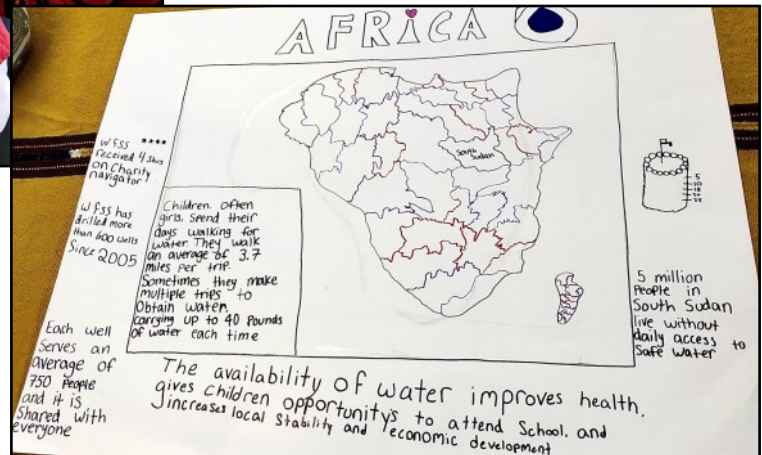 AFRiCA
WFSS ****
received 4 stars
on Charity
navigator
WFSS has
drilled more
than 600 wells
Since 2005
Each well
Serves an
average of
750 People
and it is
Shared with
everyone
Children. Often
girls. Spend their
days walking for
water. They walk
an average of 3.7
miles per trip.
Sometimes they make
multiple trips to
Obtain water,
carrying up to 40 Pounds
of water each time
South
Sudan
5
10
15
20
25
5 million
People in
South Sudan
live without
daily access to
Safe water
The availability of water improves health,
gives children opportunity's to attend School, and
increases local Stability and economic development